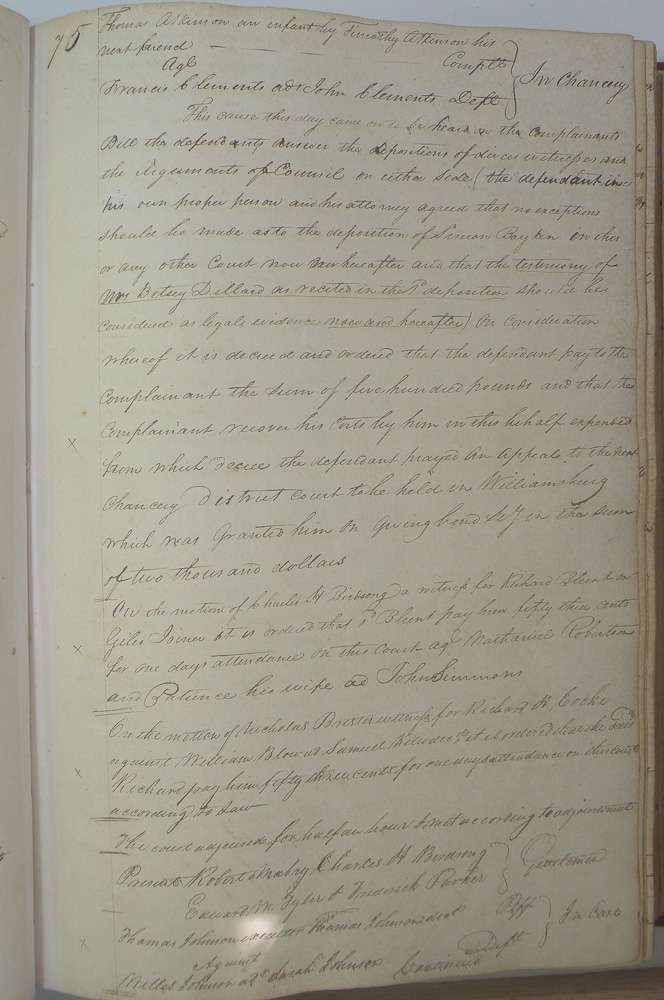 75
Thomas Atkinson an infant by Timothy Atkinson his
next friend — Complt
Agt In Chancery
Francis Clements adr John Clements Deft
This cause this day came on to be heard on the complainants
Bill the defendants answer the depositions of divers witnesses and
the Arguments of Council on either side (the defendant in
his own proper person and his attorney agreed that no exceptions
should be made as to the deposition of Simon in this
or any other Court now nor hereafter and that the testimony of
Mrs Betsey Dillard as recited in the sd deposition should be
considered as legal evidence now and hereafter) On Consideration
whereof it is decreed and ordered that the defendant pay to the
Complainant the sum of five hundred pounds and that the
Complainant recover his Costs by him in this behalf expended
from which decree the defendant prayed an appeal to the next
Chancery District court to be held in Williamsburg
which was Granted him on giving bond &c in the sum
of two thousand dollars
On the motion of Charles H Birdsong a witness for Richard Blunt
Giles Joiner it is ordered that sd Blunt pay him fifty three cents
for one days attendance on this Court agt Nathaniel Robertson
and Patience his wife ad John Simmons
On the motion of Nicholas Brester witness for Richard H. Cocke
against William Blow ad Samuel decd it is ordered that the said
Richard pay him fifty three cents for one days attendance on this Court
according to Law
The court adjourned for half an hour & met according to adjournment
Present Robert Mabry Charles H. Birdsong
Gentlemen
Edward M. Tyler & Frederick Parker
Thomas Johnson executor Thomas Johnson decd Plff
In Case
Against
Milles Johnson ad Sarah Johnson Deft